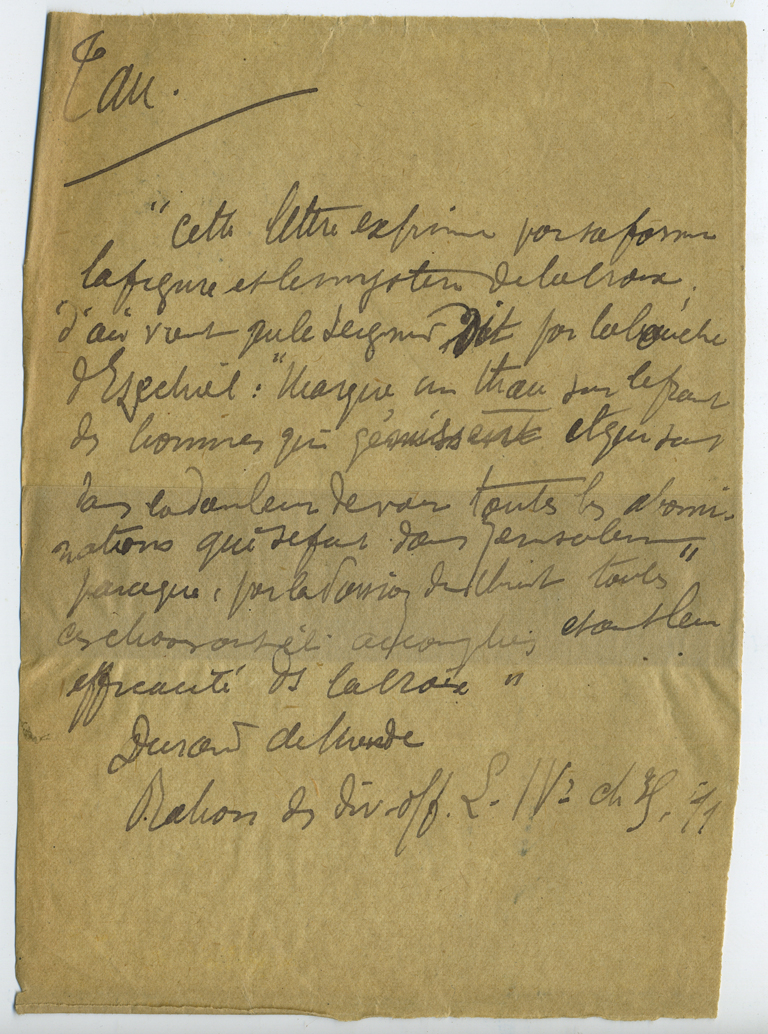 Tau.
"cette lettre exprime par sa forme
la figure et le mystère de la croix,
d'où vient que le Seigneur dit par la bouche
d'Ezechiel : "Marque un thau sur le front
des hommes qui gémissent et qui sont
dans la douleur de voir toutes les abomi-
nations qui se font dans Jerusalem"
parceque, par la Passion du Christ toutes
ces choses ont été accomplies et ont leur
efficacité ds la croix"
Durand de Mende
Ration des div-off. L. IV² ch